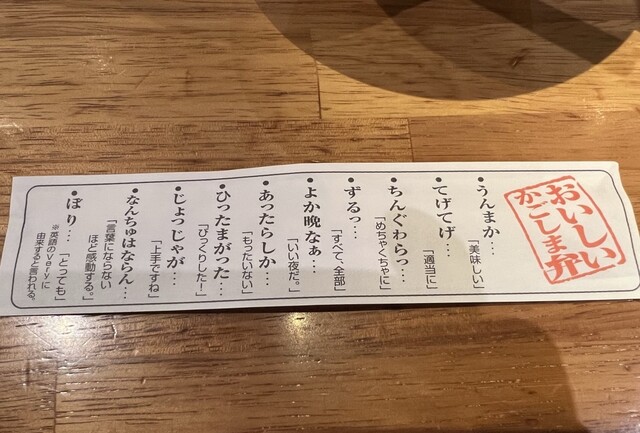 おいしい
かごしま弁
•うんまか…「美味しい」
•てげてげ…「適当に」
•ちんぐわらっ…「めちゃくちゃに」
•ずるっ…「すべて、全部」
•よか晩なぁ…「いい夜だ。」
•あったらしか…「もったいない」
•ひったまがった…「びっくりした！」
•じょっじゃが…「上手ですね」
•なんちゅはならん…「言葉にならない
ほど感動する。」
•ぼり…「とっても」
※英語のVeryに
由来すると言われる。